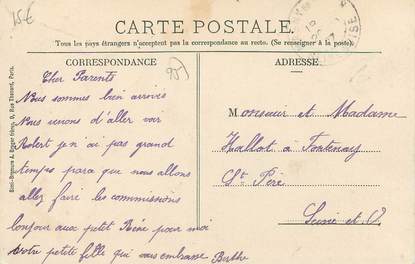 15€
CARTE POSTALE.
Tous les pays étrangers n'acceptent pas la correspondance au recto. (Se renseigner à la poste).
CORRESPONDANCE
ADRESSE
Cher Parents
Nous sommes bien arrivés
Nous venons d'aller voir
Robert je n'ai pas grand
temps para que nous allons
allez faire les commissions
bonjour aux petit Réné pour moi
votre petite fille qui vous embrasse Berthe
Monsieur et Madame
Hallot à Fontenay
St Père
Seine et O